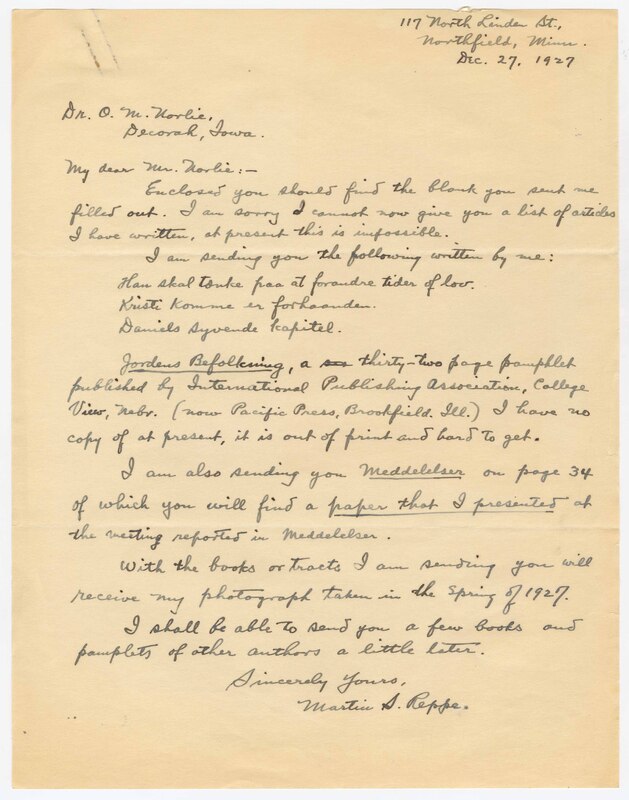 117 North Linden St.,
Northfield, Minn.
Dec. 27, 1927
Dr. O. M. Norlie,
Decorah, Iowa.
My dear Mr. Norlie:—
Enclosed you should find the blank you sent me
filled out. I am sorry I cannot now give you a list of articles
I have written, at present this is impossible.
I am sending you the following written by me:
Han skal tænke paa at forandre tider of lov.
Kristi Komme er forhaanden.
Daniels syvende kapitel.
Jordens Befolkning, a thirty-two page pamphlet
published by International Publishing Association, College
View, Nebr. (now Pacific Press, Brookfield. Ill.) I have no
copy of at present, it is out of print and hard to get.
I am also sending you Meddelelser on page 34
of which you will find a paper that I presented at
the meeting reported in Meddelelser.
With the books or tracts I am sending you will
receive my photograph taken in the Spring of 1927.
I shall be able to send you a few books and
pamplets of other authors a little later.
Sincerely Yours,
Martin S. Reppe.